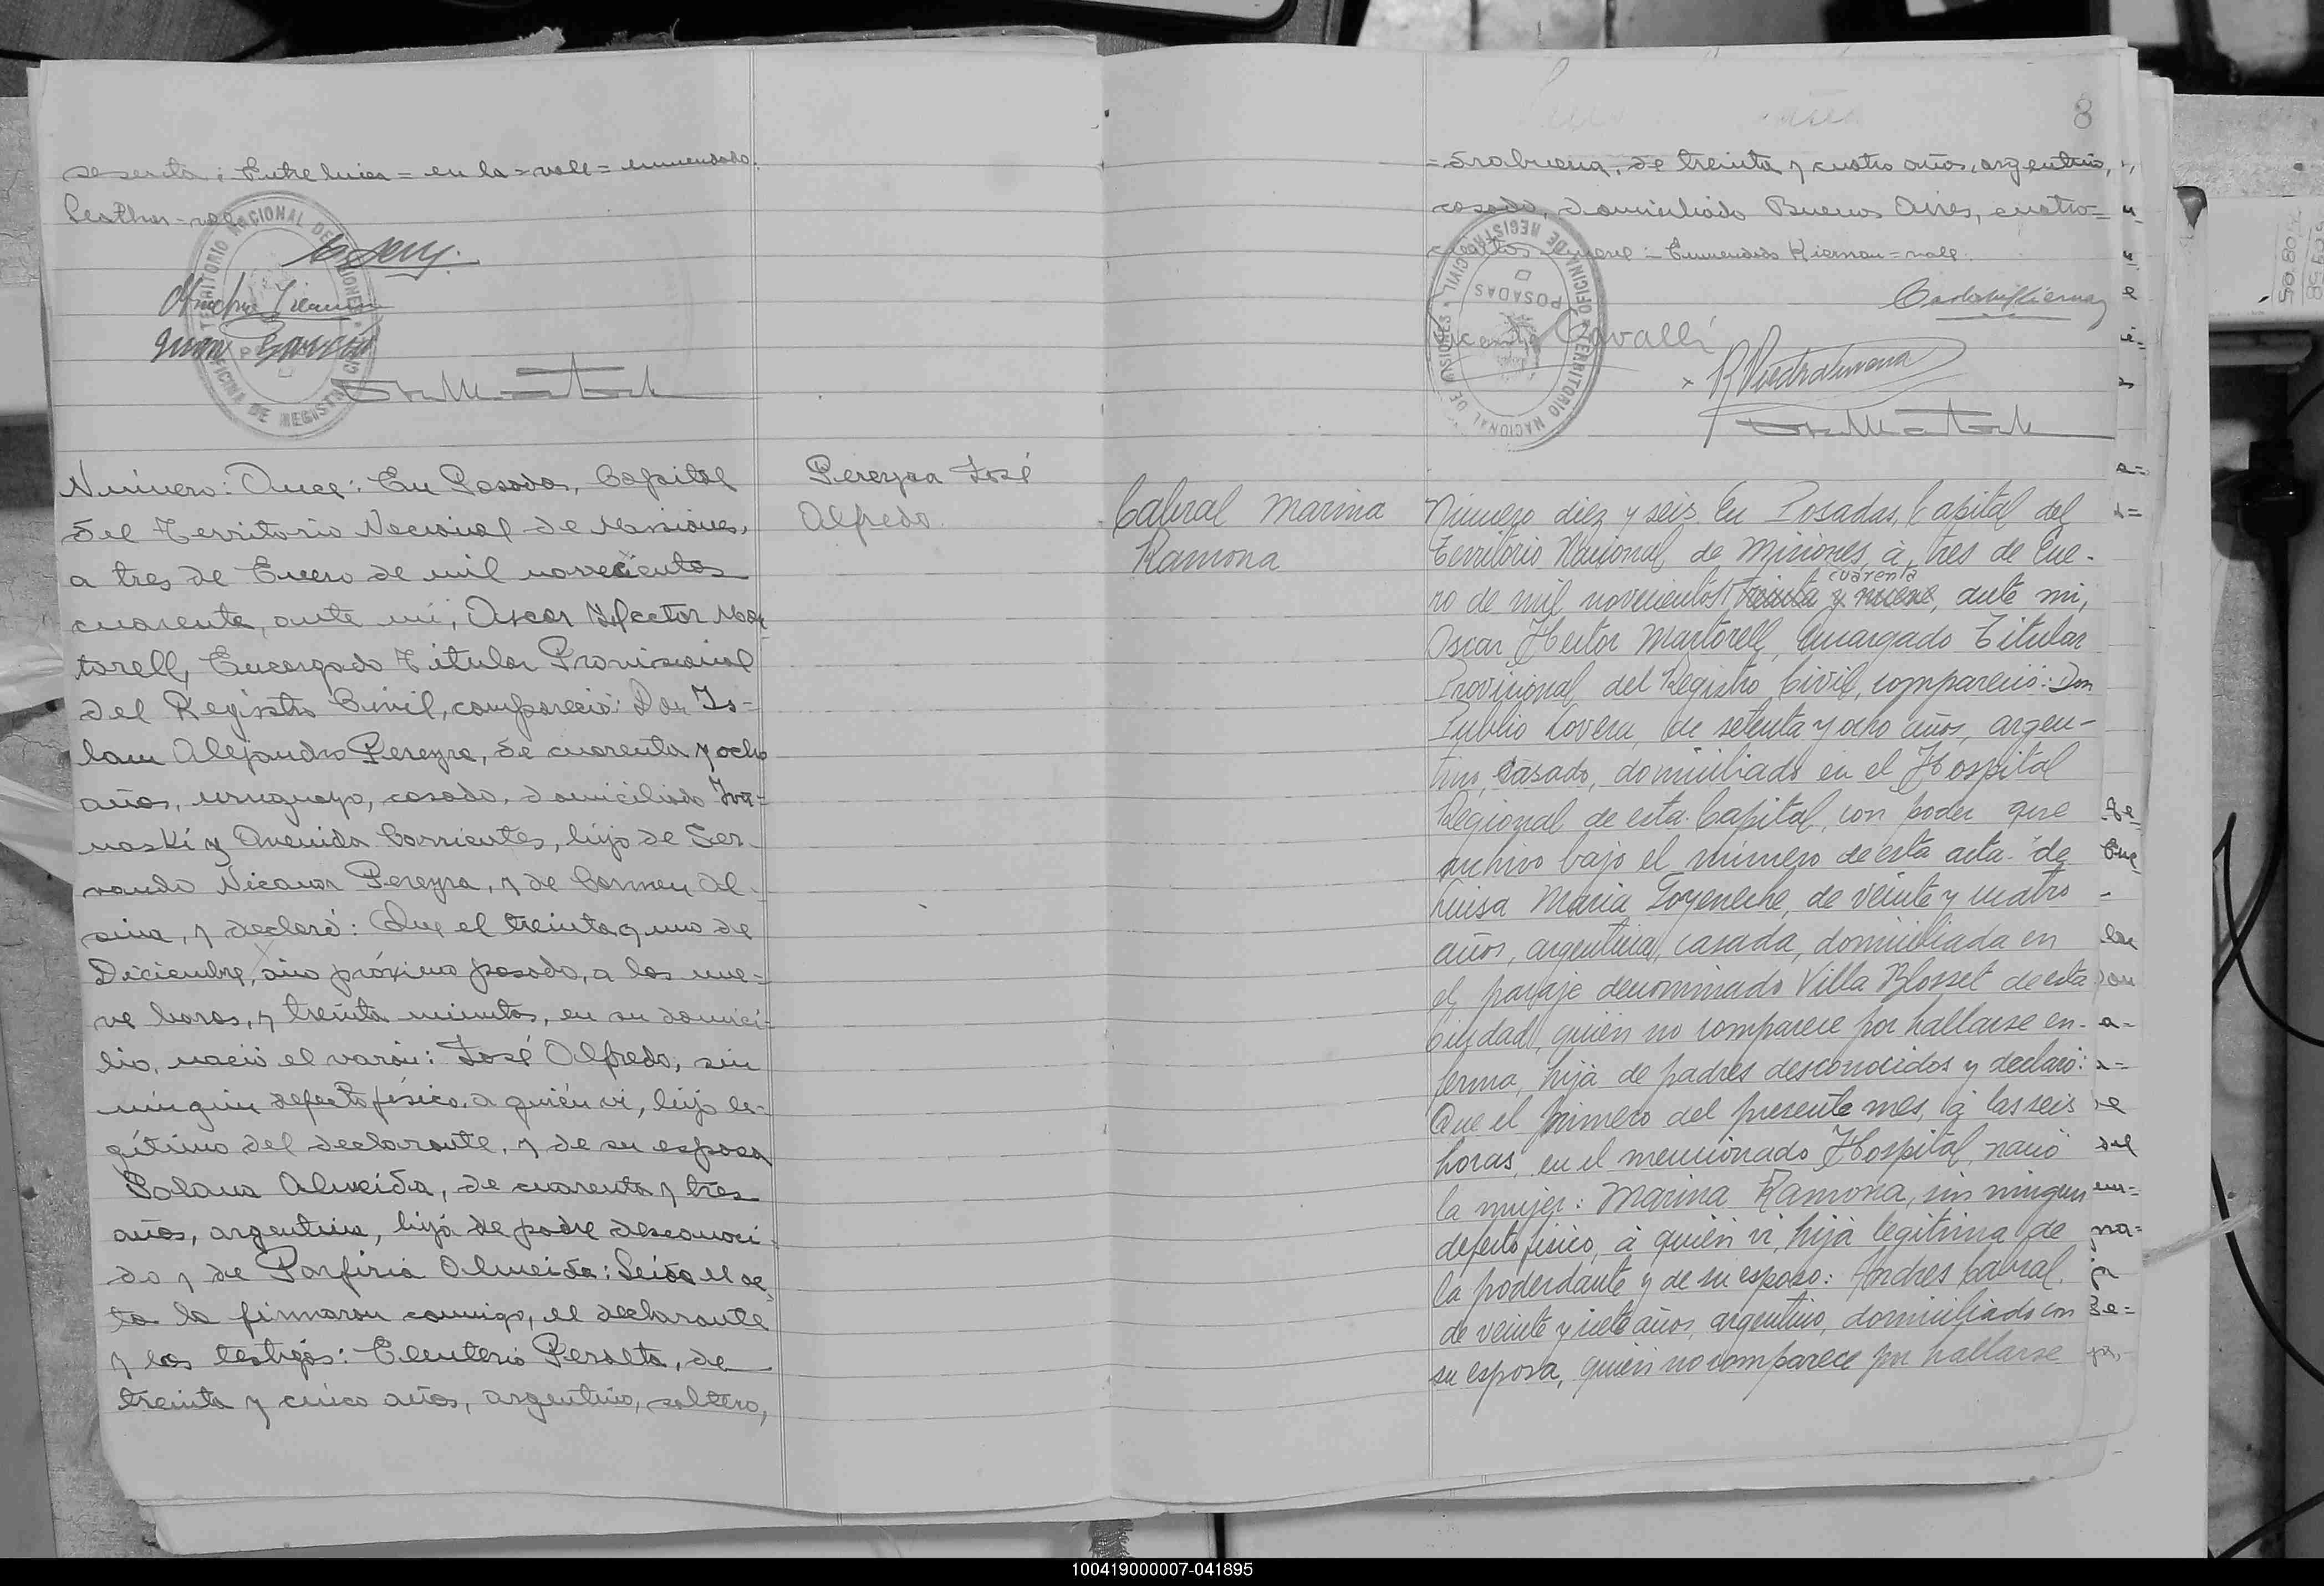 sesenta: Entre linea = en la = vale = enmendado:
TERRITORIO NACIONAL DE MISIONES
OFICINA DE REGISTRO CIVIL
Juan García
Número: Once: En Posadas, Capital
del Territorio Nacional de Misiones,
a tres de Enero de mil novecientos
cuarenta, ante mí, Oscar Héctor Mar
torell, Encargado Titular Provisional
del Registro Civil, compareció: Don Is-
lam Alejandro Pereyra, de cuarenta y ocho
años, uruguayo, casado, domiciliado
y Avenida Corrientes, hijo de Ser-
vando Nicanor Pereyra, y de Carmen Al-
sina, y declaró: Que el treinta y uno de
Diciembre, año próximo pasado, a las nue-
ve horas, y treinta minutos, en su domici-
lio, nació el varón: José Alfredo, sin
ningún defecto físico, a quién vi, hijo le-
gítimo del declarante, y de su esposa
Solana Almeida, de cuarenta y tres
años, argentina, hija de padre desconoci-
do y de Porfiria Almeida: Leída el ac-
ta la firmaron conmigo, el declarante
y los testigos: Eleuterio Peralta, de
treinta y cinco años, argentino, soltero,
Pereyra José
Alfredo
8
de treinta y cuatro años, argentino,
casado, domiciliado Buenos Aires, cuatro=
cientos nueve = Enmendado Kiernan = vale.
OFICINA DE REGISTRO CIVIL
TERRITORIO NACIONAL DE MISIONES
POSADAS
Vicente Cavalli
Cabral Marina
Ramona
Número diez y seis. En Posadas, Capital del
Territorio Nacional de Misiones, á tres de Ene-
cuarenta
ro de mil novecientos treinta y nueve, ante mi,
Oscar Hector Martorell, Encargado Titular
Provisional del Registro Civil, compareció: Don
Publio Lovera, de setenta y ocho años, argen-
tino, casado, domiciliado en el Hospital
Regional de esta Capital, con poder que
archivo bajo el número de esta acta de
Luisa Maria Goyeneche, de veinte y cuatro
años, argentina, casada, domiciliada en
el paraje denominado Villa Blosset de esta
Ciudad, quien no comparece por hallarse en-
ferma, hija de padres desconocidos y declaró:
Que el primero del presente mes, á las seis
horas, en el mencionado Hospital, nació
la mujer: Marina Ramona, sin ningun
defecto fisico, á quién vi, hija legitima de
la poderdante y de su esposo: Andres Cabral,
de veinte y siete años, argentino, domiciliado con
su esposa, quién no comparece por hallarse
100419000007-041895